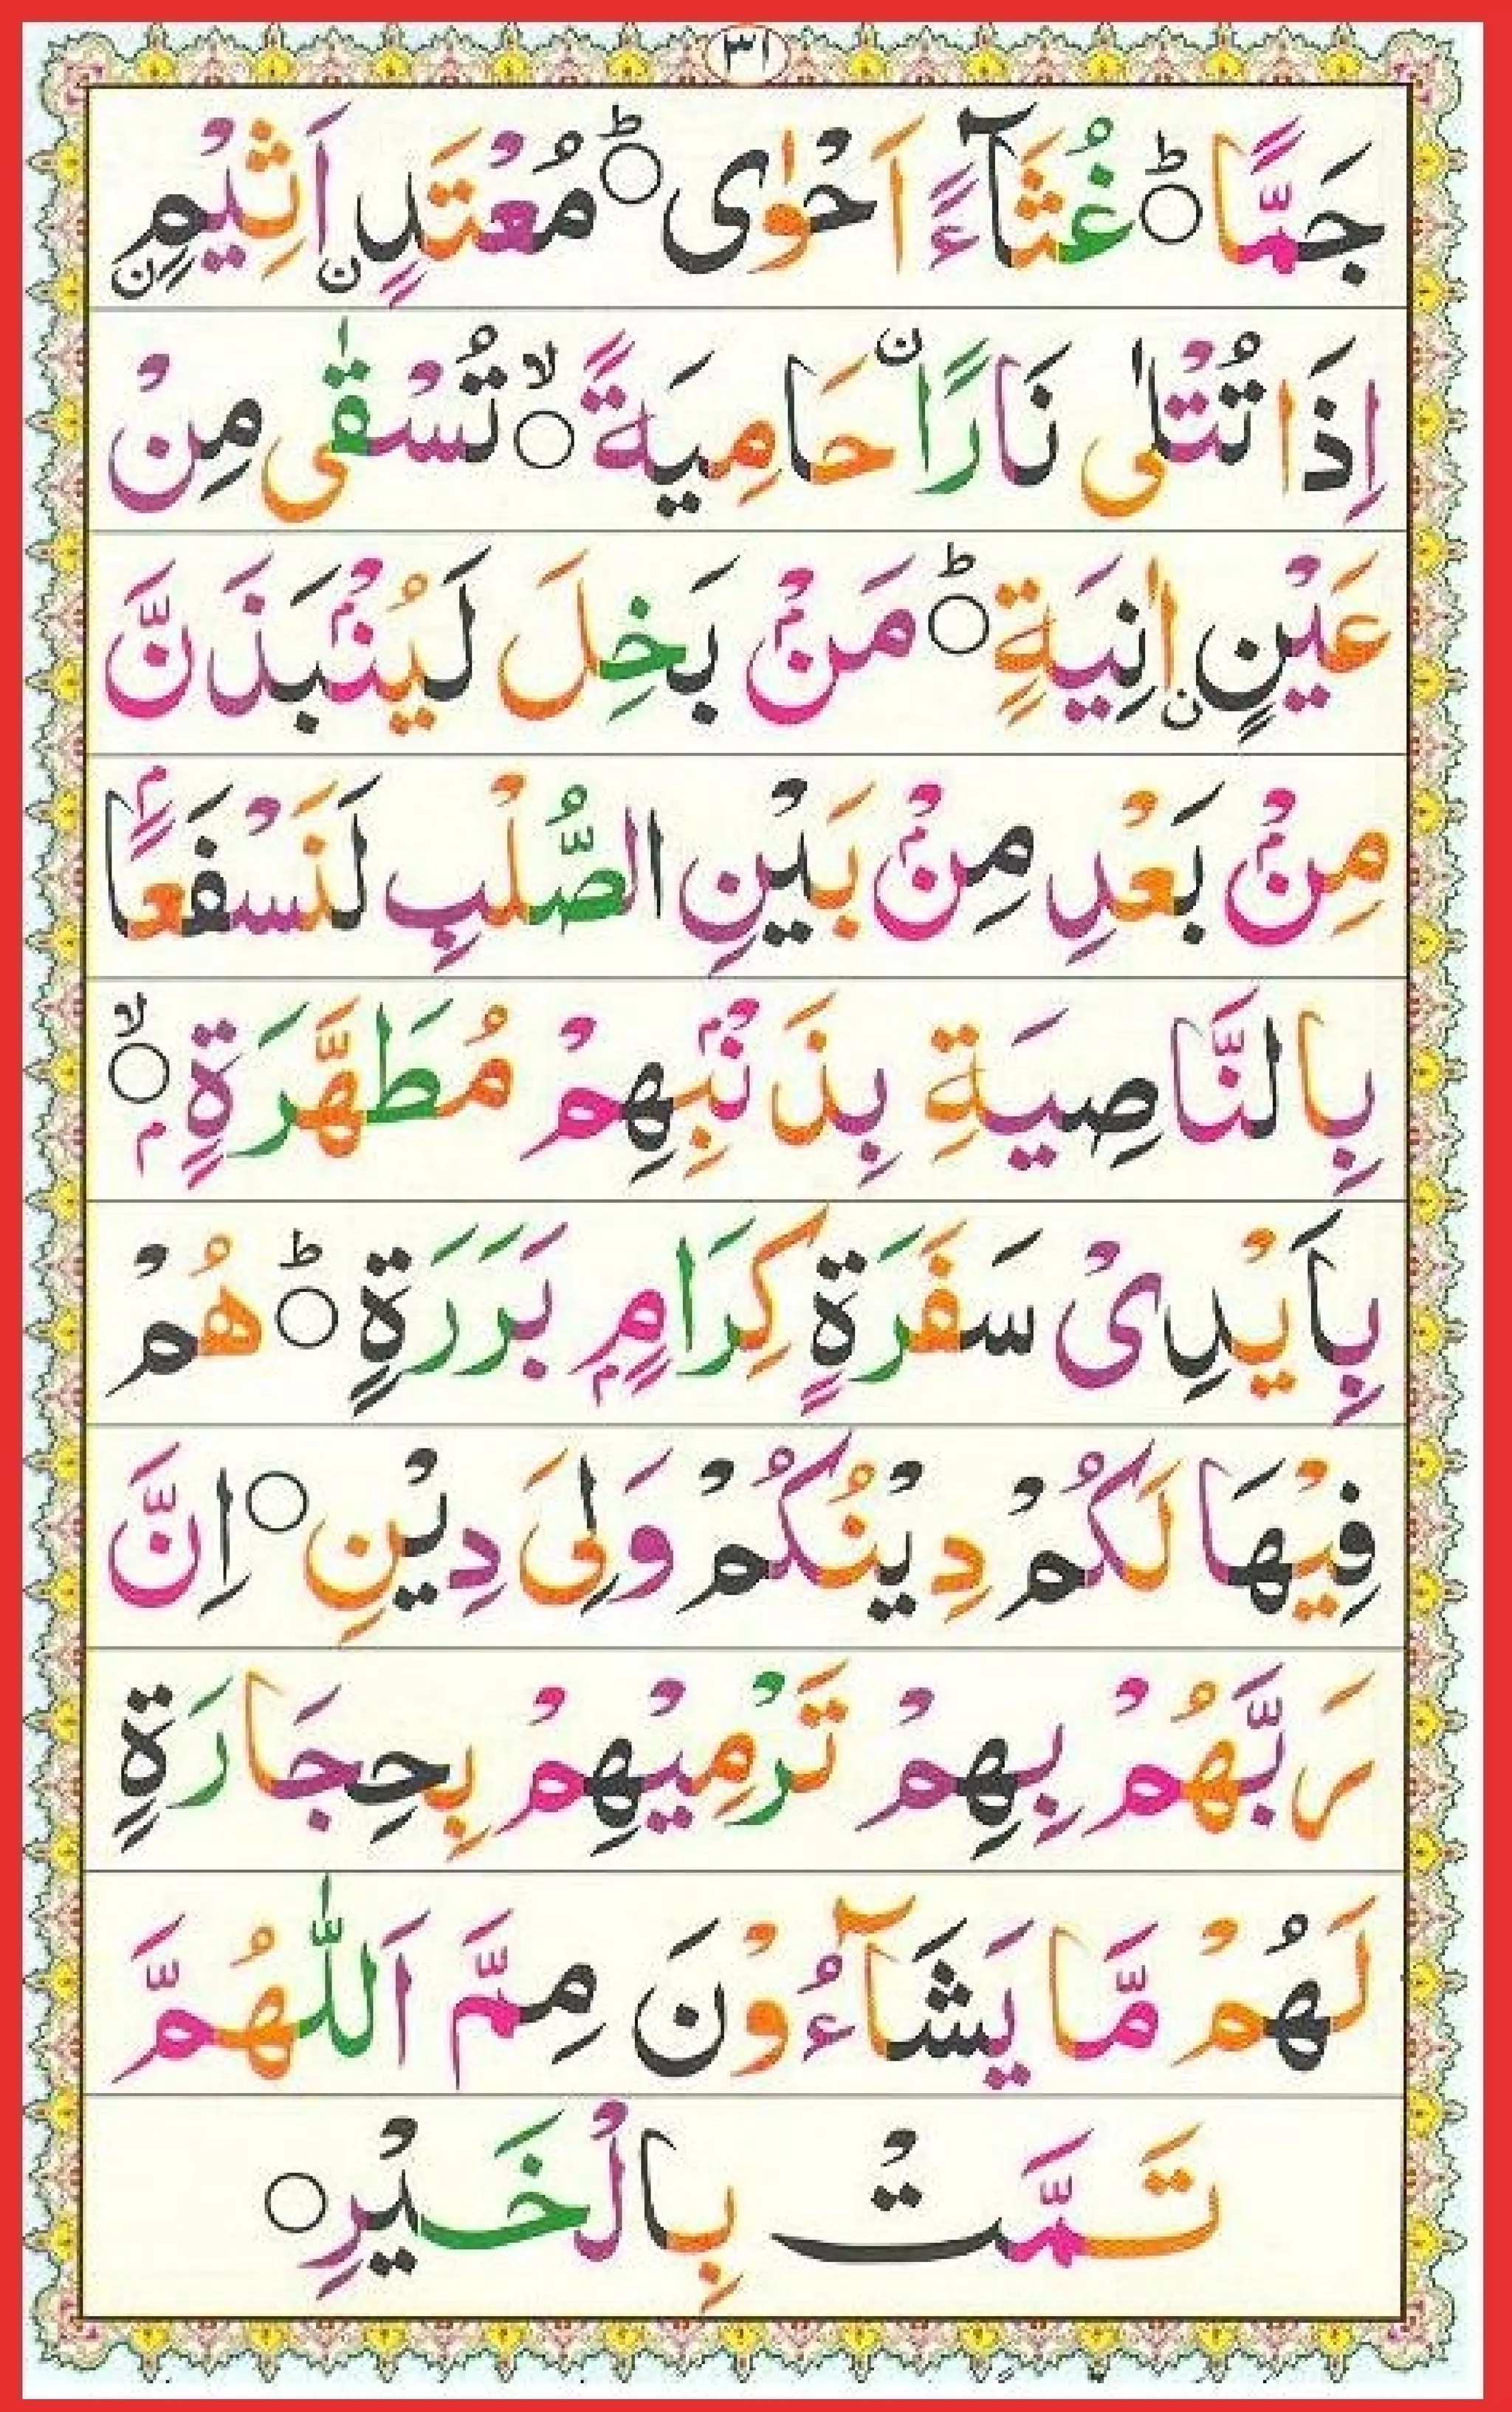 ٣١
جَمًّا ؕ○ غُثَآءً اَحْوٰى ؕ○ مُعْتَدٍ نِ اَثِيْمٍ نِ
اِذَا تُتْلٰى نَارًا نْ حَامِيَةً ۙ○ تُسْقٰى مِنْ
عَيْنٍ نِ اٰنِيَةٍ ؕ○ مَنْۢ بَخِلَ لَيُنْۢبَذَنَّ
مِنْۢ بَعْدِ مِنْۢ بَيْنِ الصُّلْبِ لَنَسْفَعًاۢ
بِالنَّاصِيَةِ بِذَنْۢبِهِمْ مُطَهَّرَةٍۭ ۙ○
بِاَيْدِىْ سَفَرَةٍ كِرَامٍۭ بَرَرَةٍ ؕ○ هُمْ
فِيْهَا لَكُمْ دِيْنُكُمْ وَلِىَ دِيْنِ ○ اِنَّ
رَبَّهُمْ بِهِمْ تَرْمِيْهِمْ بِحِجَارَةٍ
لَهُمْ مَّا يَشَآءُوْنَ مِمَّ اَللّٰهُمَّ
تَمَّتْ بِالْخَيْرِ ○